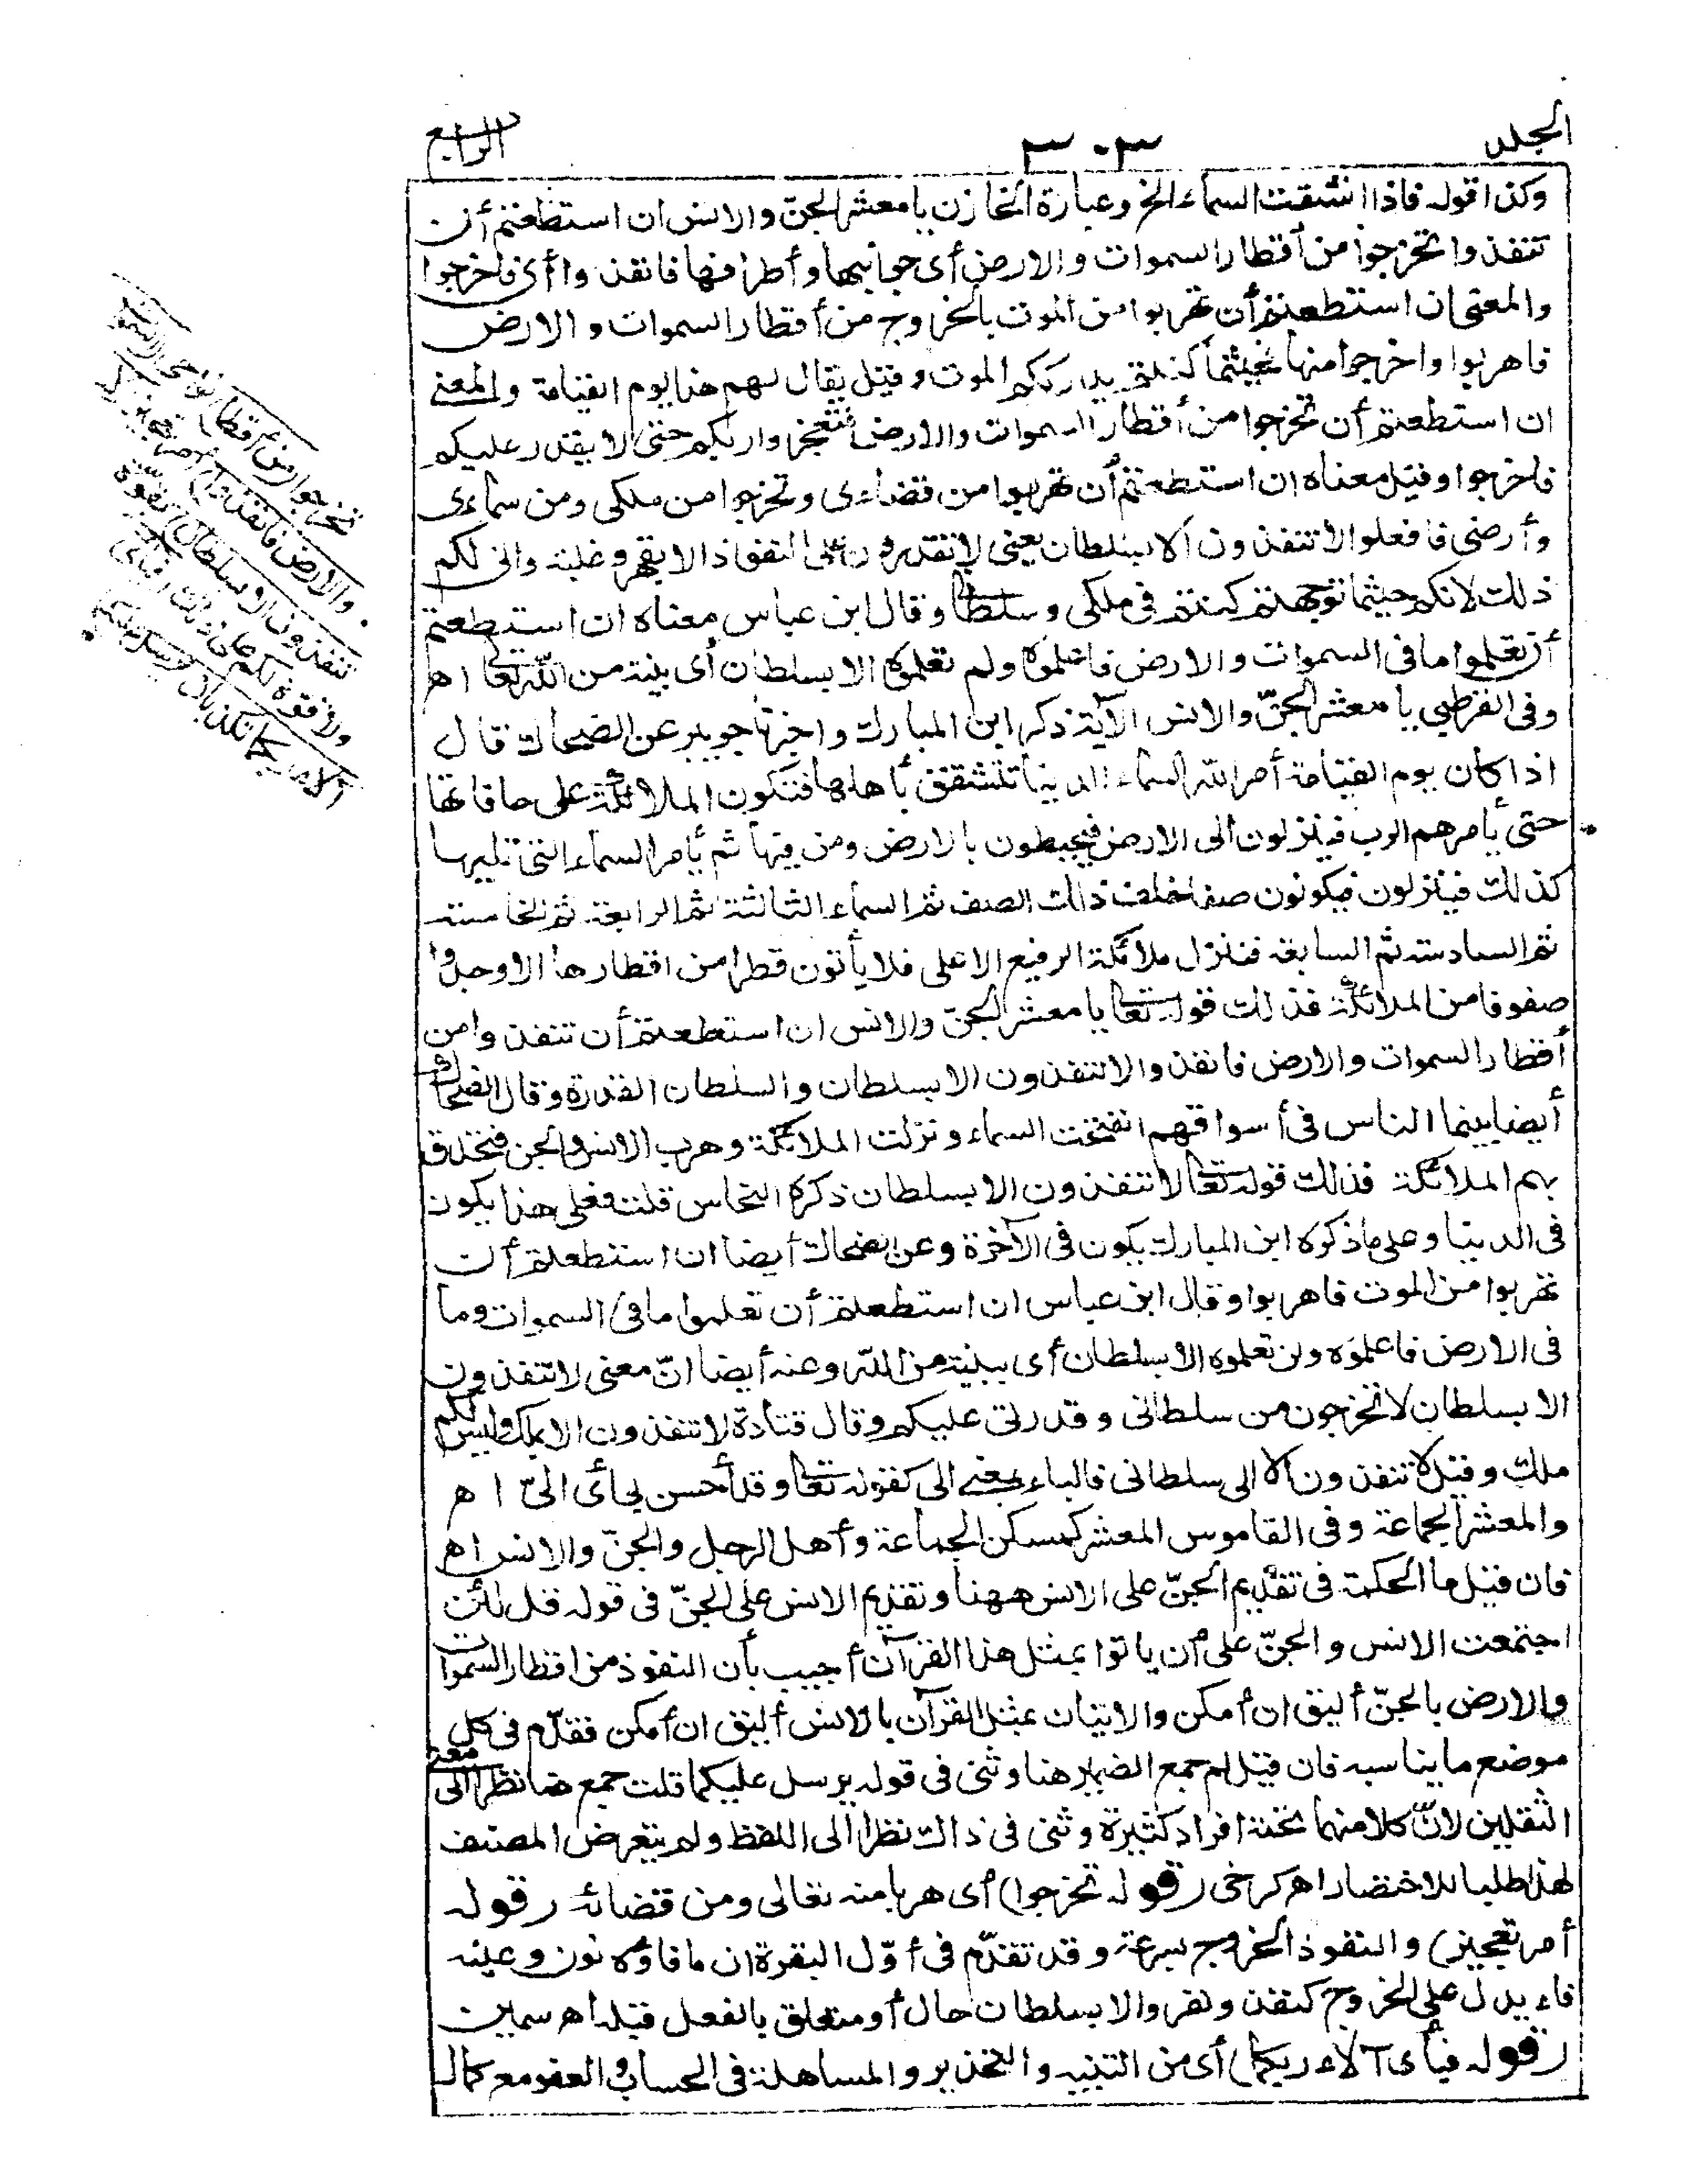 الجلد ٣٠٣ الرابع
وكذا قوله فاذا انشقت السماء الخ وعبارة الخازن يا معشر الجنّ والانس ان استطعتم أن
تنفذوا تخرجوا من أقطار السموات والارض أى جوانبها وأطرافها فانفذوا أى فاخرجوا
والمعنى ان استطعتم أن تهربوا من الموت بالخروج من أقطار السموات والارض
فاهربوا واخرجوا منها فحيثما كنتم يدرككم الموت وقيل يقال لهم هذا يوم القيامة والمعنى
ان استطعتم أن تخرجوا من أقطار السموات والارض فتعجزوا ربكم حتى لا يقدر عليكم
فاخرجوا وقيل معناه ان استطعتم أن تهربوا من قضاءى وتخرجوا من ملكى ومن سماءى
وأرضى فافعلوا لا تنفذون الا بسلطان يعنى لا تقدرون على النفوذ الا بقهر وغلبة وانى لكم
ذلك لانكم حيثما توجهتم كنتم فى ملكى وسلطا وقال ابن عباس معناه ان استطعتم
أن تعلموا ما فى السموات والارض فاعلموه ولم تعلموه الا بسلطان أى بينة من الله تعا اه
وفى القرطبى يا معشر الجنّ والانس الآية ذكر ابن المبارك واخبرنا جويبر عن الضحاك قال
اذا كان يوم القيامة أمر الله السماء الدنيا تتشقق بأهلها فتكون الملائكة على حافاتها
حتى يأمرهم الرب فينزلون الى الارض فيحيطون بالارض ومن فيها ثم يأمر السماء التى تليها
كذلك فينزلون فيكونون صفا خلف ذلك الصف ثم السماء الثالثة ثم الرابعة ثم الخامسة
ثم السادسة ثم السابعة فتنزل ملائكة الرفيع الاعلى فلا يأتون قطرا من اقطارها الا وجدوا
صفوفا من الملائكة فذلك قوله تعا يا معشر الجنّ والانس ان استطعتم أن تنفذوا من
أقطار السموات والارض فانفذوا لا تنفذون الا بسلطان والسلطان القدرة وقال الضحاك
أيضا بينما الناس فى أسواقهم انفتحت السماء ونزلت الملائكة وهرب الانس والجن فتحدق
بهم الملائكة فذلك قوله تعا لا تنفذون الا بسلطان ذكره النحاس قلت فعلى هذا يكون
فى الدنيا وعلى ما ذكره ابن المبارك يكون فى الآخرة وعن الضحاك أيضا ان استطعتم أن
تهربوا من الموت فاهربوا وقال ابن عباس ان استطعتم أن تعلموا ما فى السموات وما
فى الارض فاعلموه ولن تعلموه الا بسلطان أى ببينة من الله وعنه أيضا انّ معنى لا تنفذون
الا بسلطان لا تخرجون من سلطانى وقدرتى عليكم وقال قتادة لا تنفذون الا بملك وليس لكم
ملك وقيل لا تنفذون الا الى سلطانى فالباء بمعنى الى كقوله تعا وقد أحسن بى أى الىّ اه
والمعشر الجماعة وفى القاموس المعشر كمسكن الجماعة وأهل الرجل والجنّ والانس اه
فان قيل ما الحكمة فى تقديم الجنّ على الانس ههنا وتقديم الانس على الجنّ فى قوله قل لئن
اجتمعت الانس والجنّ على أن ياتوا بمثل هذا القرآن أجيب بأن النفوذ من اقطار السموات
والارض بالجنّ أليق ان أمكن والاتيان بمثل القرآن بالانس أليق ان أمكن فقدّم فى كل
موضع ما يناسبه فان قيل لم جمع الضمير هنا وثنى فى قوله يرسل عليكما قلت جمع هنا نظرا الى معنى
الثقلين لانّ كلا منهما تحته افراد كثيرة وثنى فى ذاك نظرا الى اللفظ ولم يتعرض المصنف
لهذا طلبا للاختصار اه كرخى (قوله تخرجوا) أى هربا منه تعالى ومن قضائه (قوله
أمر تعجيز) والنفوذ الخروج بسرعة وقد تقدّم فى أوّل البقرة ان ما فاؤه نون وعينه
فاء يدل على الخروج كنفذ ونفر والا بسلطان حال أو متعلق بالفعل قبله اه سمين
(قوله فبأى آلاء ربكما) أى من التنبيه والتحذير والمساهلة فى الحساب والعفو مع كمال
تخرجوا من أقطار نواحى
والارض فانفذوا أمر تعجيز
تنفذون الا بسلطان بقوّة
ولا قوة لكم على ذلك فبأى
آلاء ربكما تكذبان يرسل عليكما